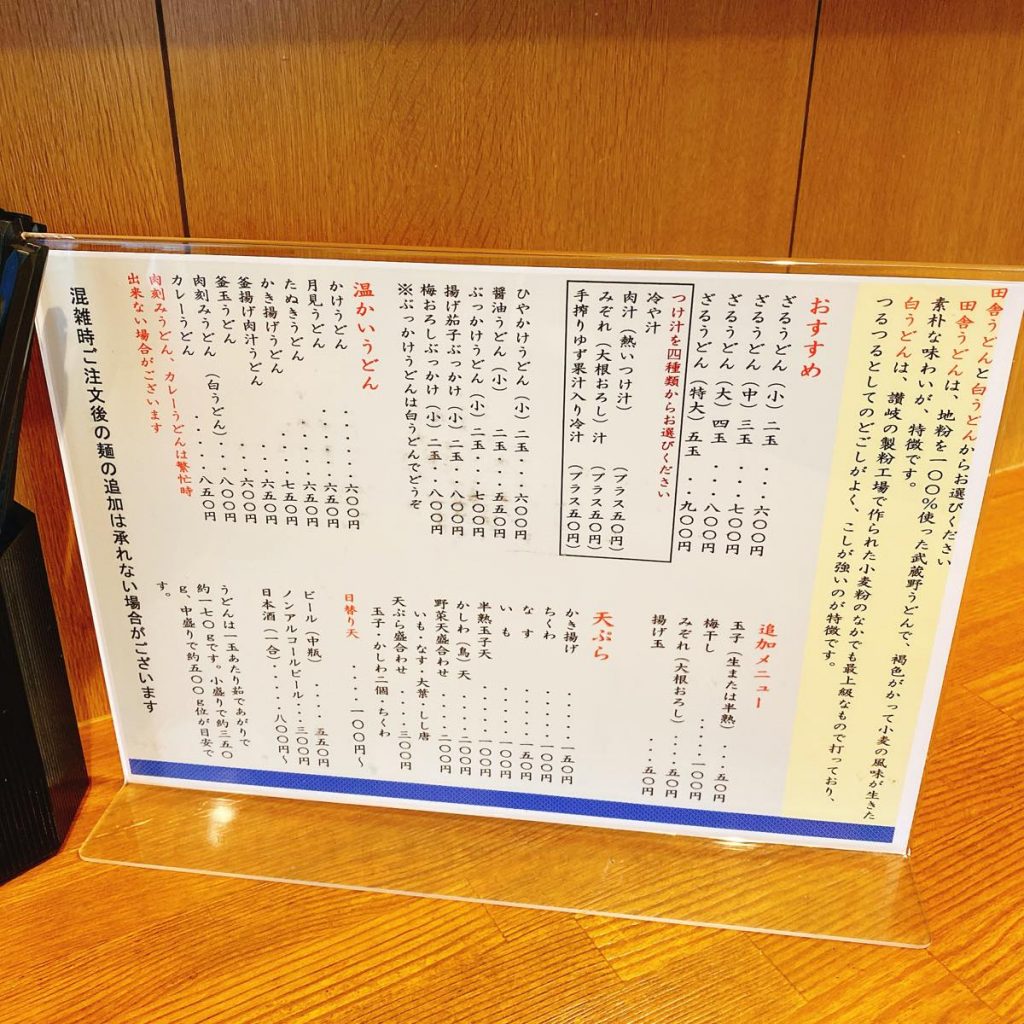 田舎うどんと白うどんからお選びください
田舎うどんは、地粉を一〇〇%使った武蔵野うどんで、褐色がかって小麦の風味が生きた
素朴な味わいが、特徴です。
白うどんは、讃岐の製粉工場で作られた小麦粉のなかでも最上級なもので打っており、
つるつるとしてのどごしがよく、こしが強いのが特徴です。
おすすめ
ざるうどん(小)二玉...六〇〇円
ざるうどん(中)三玉...七〇〇円
ざるうどん(大)四玉...八〇〇円
ざるうどん(特大)五玉..九〇〇円
つけ汁を四種類からお選びください
冷や汁
肉汁(熱いつけ汁)(プラス五〇円)
みぞれ(大根おろし)汁(プラス五〇円)
手搾りゆず果汁入り冷汁(プラス五〇円)
ひやかけうどん(小)二玉..六〇〇円
醤油うどん(小)二玉...五五〇円
ぶっかけうどん(小)二玉...七〇〇円
揚げ茄子ぶっかけ(小)二玉..八〇〇円
梅おろしぶっかけ(小)二玉..八〇〇円
※ぶっかけうどんは白うどんでどうぞ
温かいうどん
かけうどん......六〇〇円
月見うどん......六五〇円
たぬきうどん.....六五〇円
かき揚げうどん....七五〇円
釜揚げ肉汁うどん...六五〇円
釜玉うどん......六五〇円
肉刻みうどん(白うどん)..八〇〇円
カレーうどん......八五〇円
肉刻みうどん、カレーうどんは繁忙時
出来ない場合がございます
追加メニュー
玉子(生または半熟)...五〇円
梅干し......一〇〇円
みぞれ(大根おろし)....五〇円
揚げ玉....五〇円
天ぷら
かき揚げ....一五〇円
ちくわ....一〇〇円
なす....一五〇円
いも....一〇〇円
半熟玉子天....一〇〇円
かしわ(鳥)天....一〇〇円
野菜天盛合わせ....二〇〇円
いも・なす・大葉・しし唐
天ぷら盛合わせ....三〇〇円
玉子・かしわ二個・ちくわ
日替り天....一〇〇円~
ビール(中瓶)....五五〇円
ノンアルコールビール...三〇〇円
日本酒(一合)....八〇〇円~
うどんは一玉あたり茹であがりで
約一七〇gです。小盛りで約三五〇
g、中盛りで約五〇〇g位が目安で
す。
混雑時ご注文後の麺の追加は承れない場合がございます